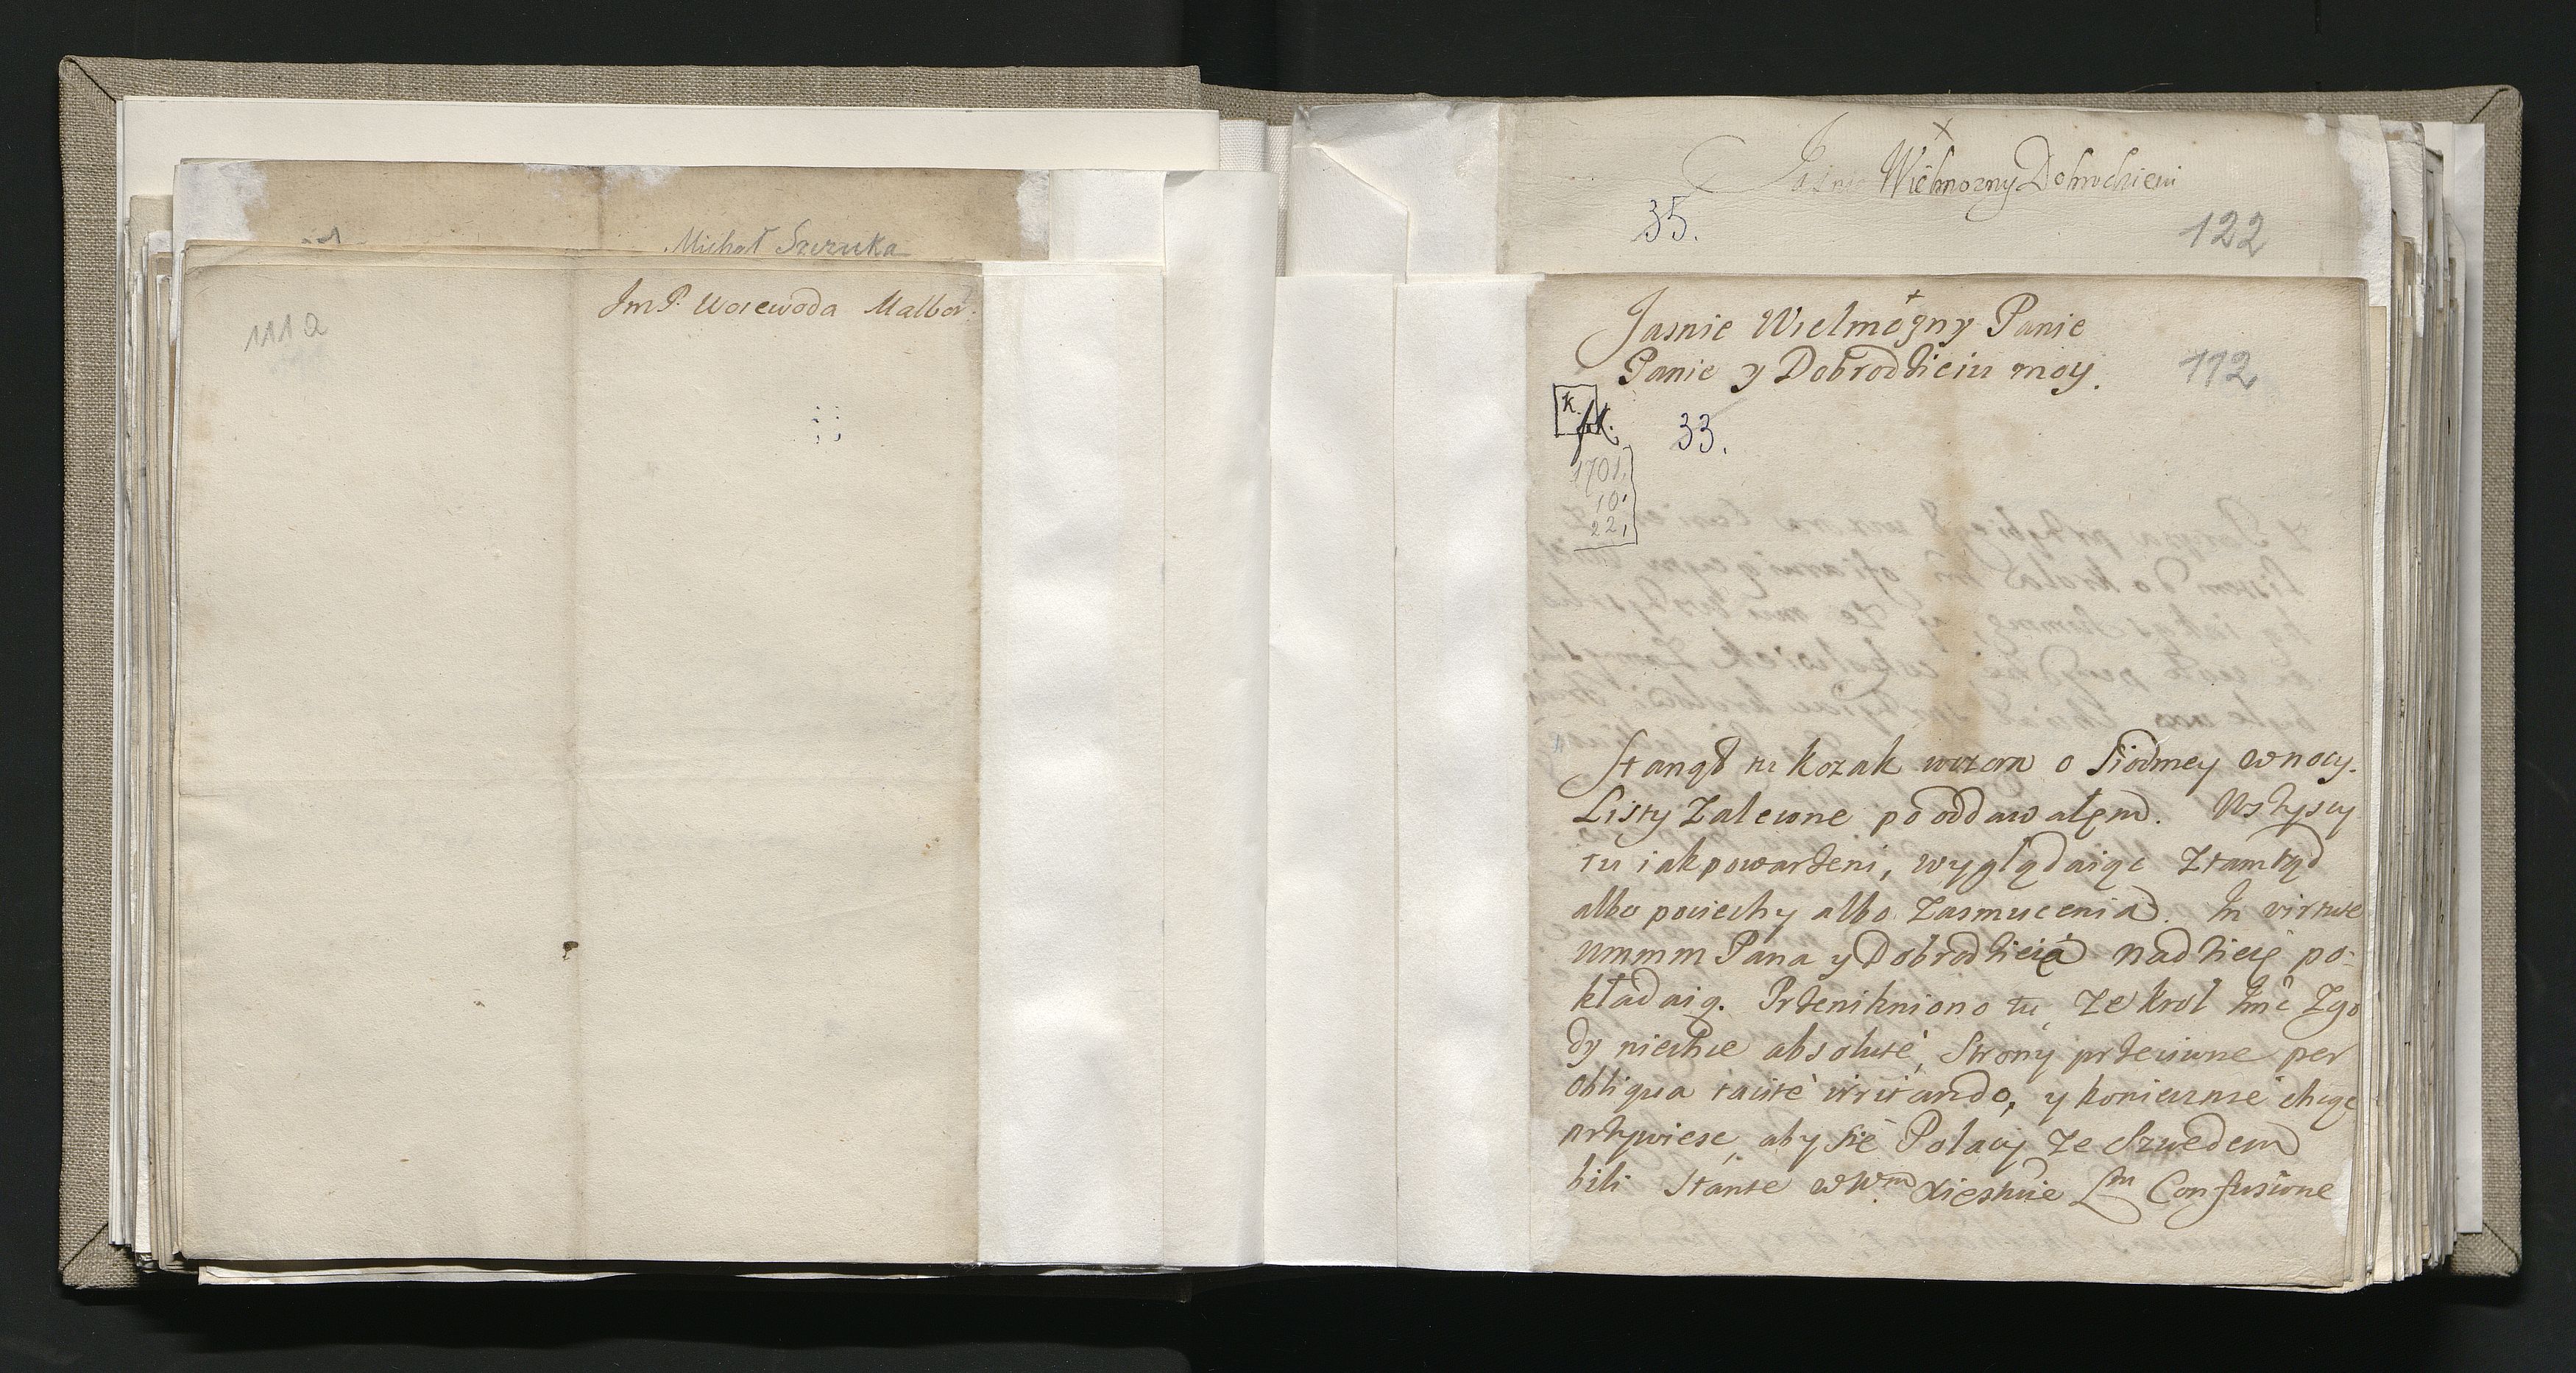 Michał Szczuka
ImP. Woiewoda Malbor:
111a
Jasnie Wielmozny Dobrodzieiu
35.
122
Jasnie Wielmożny Panie
Panie y Dobrodzieiu moy.
112
k.
33.
1701.
10.
22.
Stanął tu kozak wczora o siodmey w nocy.
Listy zalecone pooddawałęm. Wszyscy
tu iak powarzeni, wyglądaiąc ztamtąd
albo pociechy albo zasmucenia. In virtute
Wmmm Pana y Dobrodzieia nadzieię po-
kładaią. Przenikniono tu, ze krol Imć Zgo
dy niechce absolutè, Strony przeciwne per
obliqua tacitè irritando, y koniecznie chcąc
przywiesc, aby się Polacy ze Szwedem
bili stante w Wm Xięstwie Lm Confusione